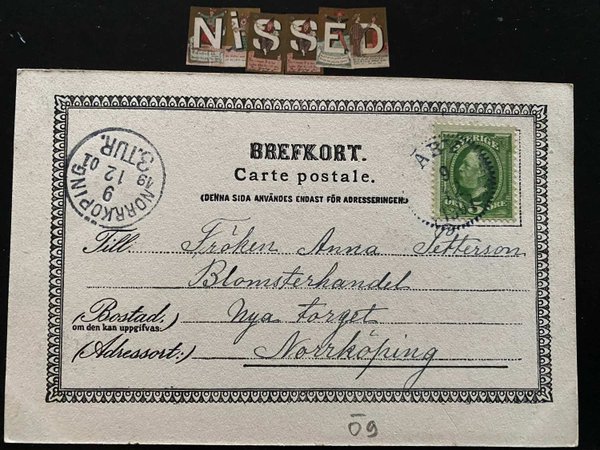 NiSSED
BREFKORT.
Carte postale.
(DENNA SIDA ANVÄNDES ENDAST FÖR ADRESSERINGEN)
SVERIGE
NORRKÖPING
3.TUR.
9
12
19 01
Till Fröken Anna Petterson
Blomsterhandel
(Bostad:) Nya Torget
om den kan uppgifvas.
(Adressort:) Norrköping
Ö9